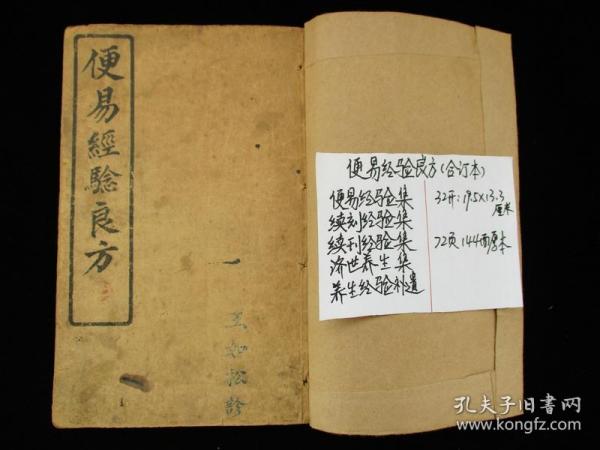 便易經驗良方
王如松診
便易经验良方(合订本)
便易经验集
续刻经验集
续刊经验集
济世养生集
养生经验补遺
32开:19.5×13.3
厘米
72页144面厚本
孔夫子旧书网
www.kongfz.com